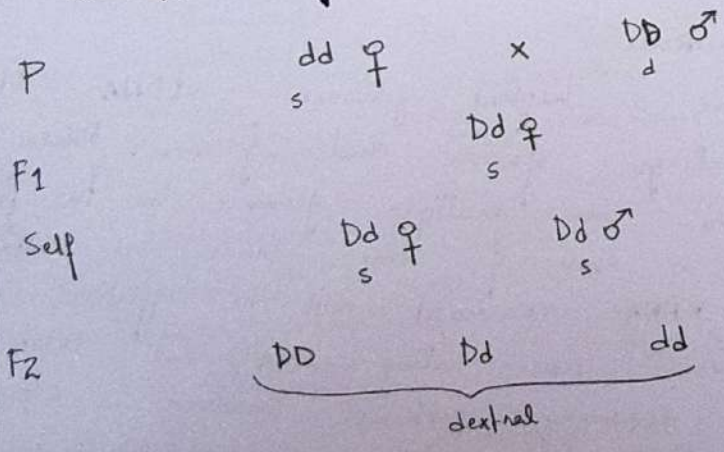 P dd ♀ × DD ♂
s d
Dd ♀
F1 s
Self Dd ♀ Dd ♂
s s
F2 DD Dd dd
dextral